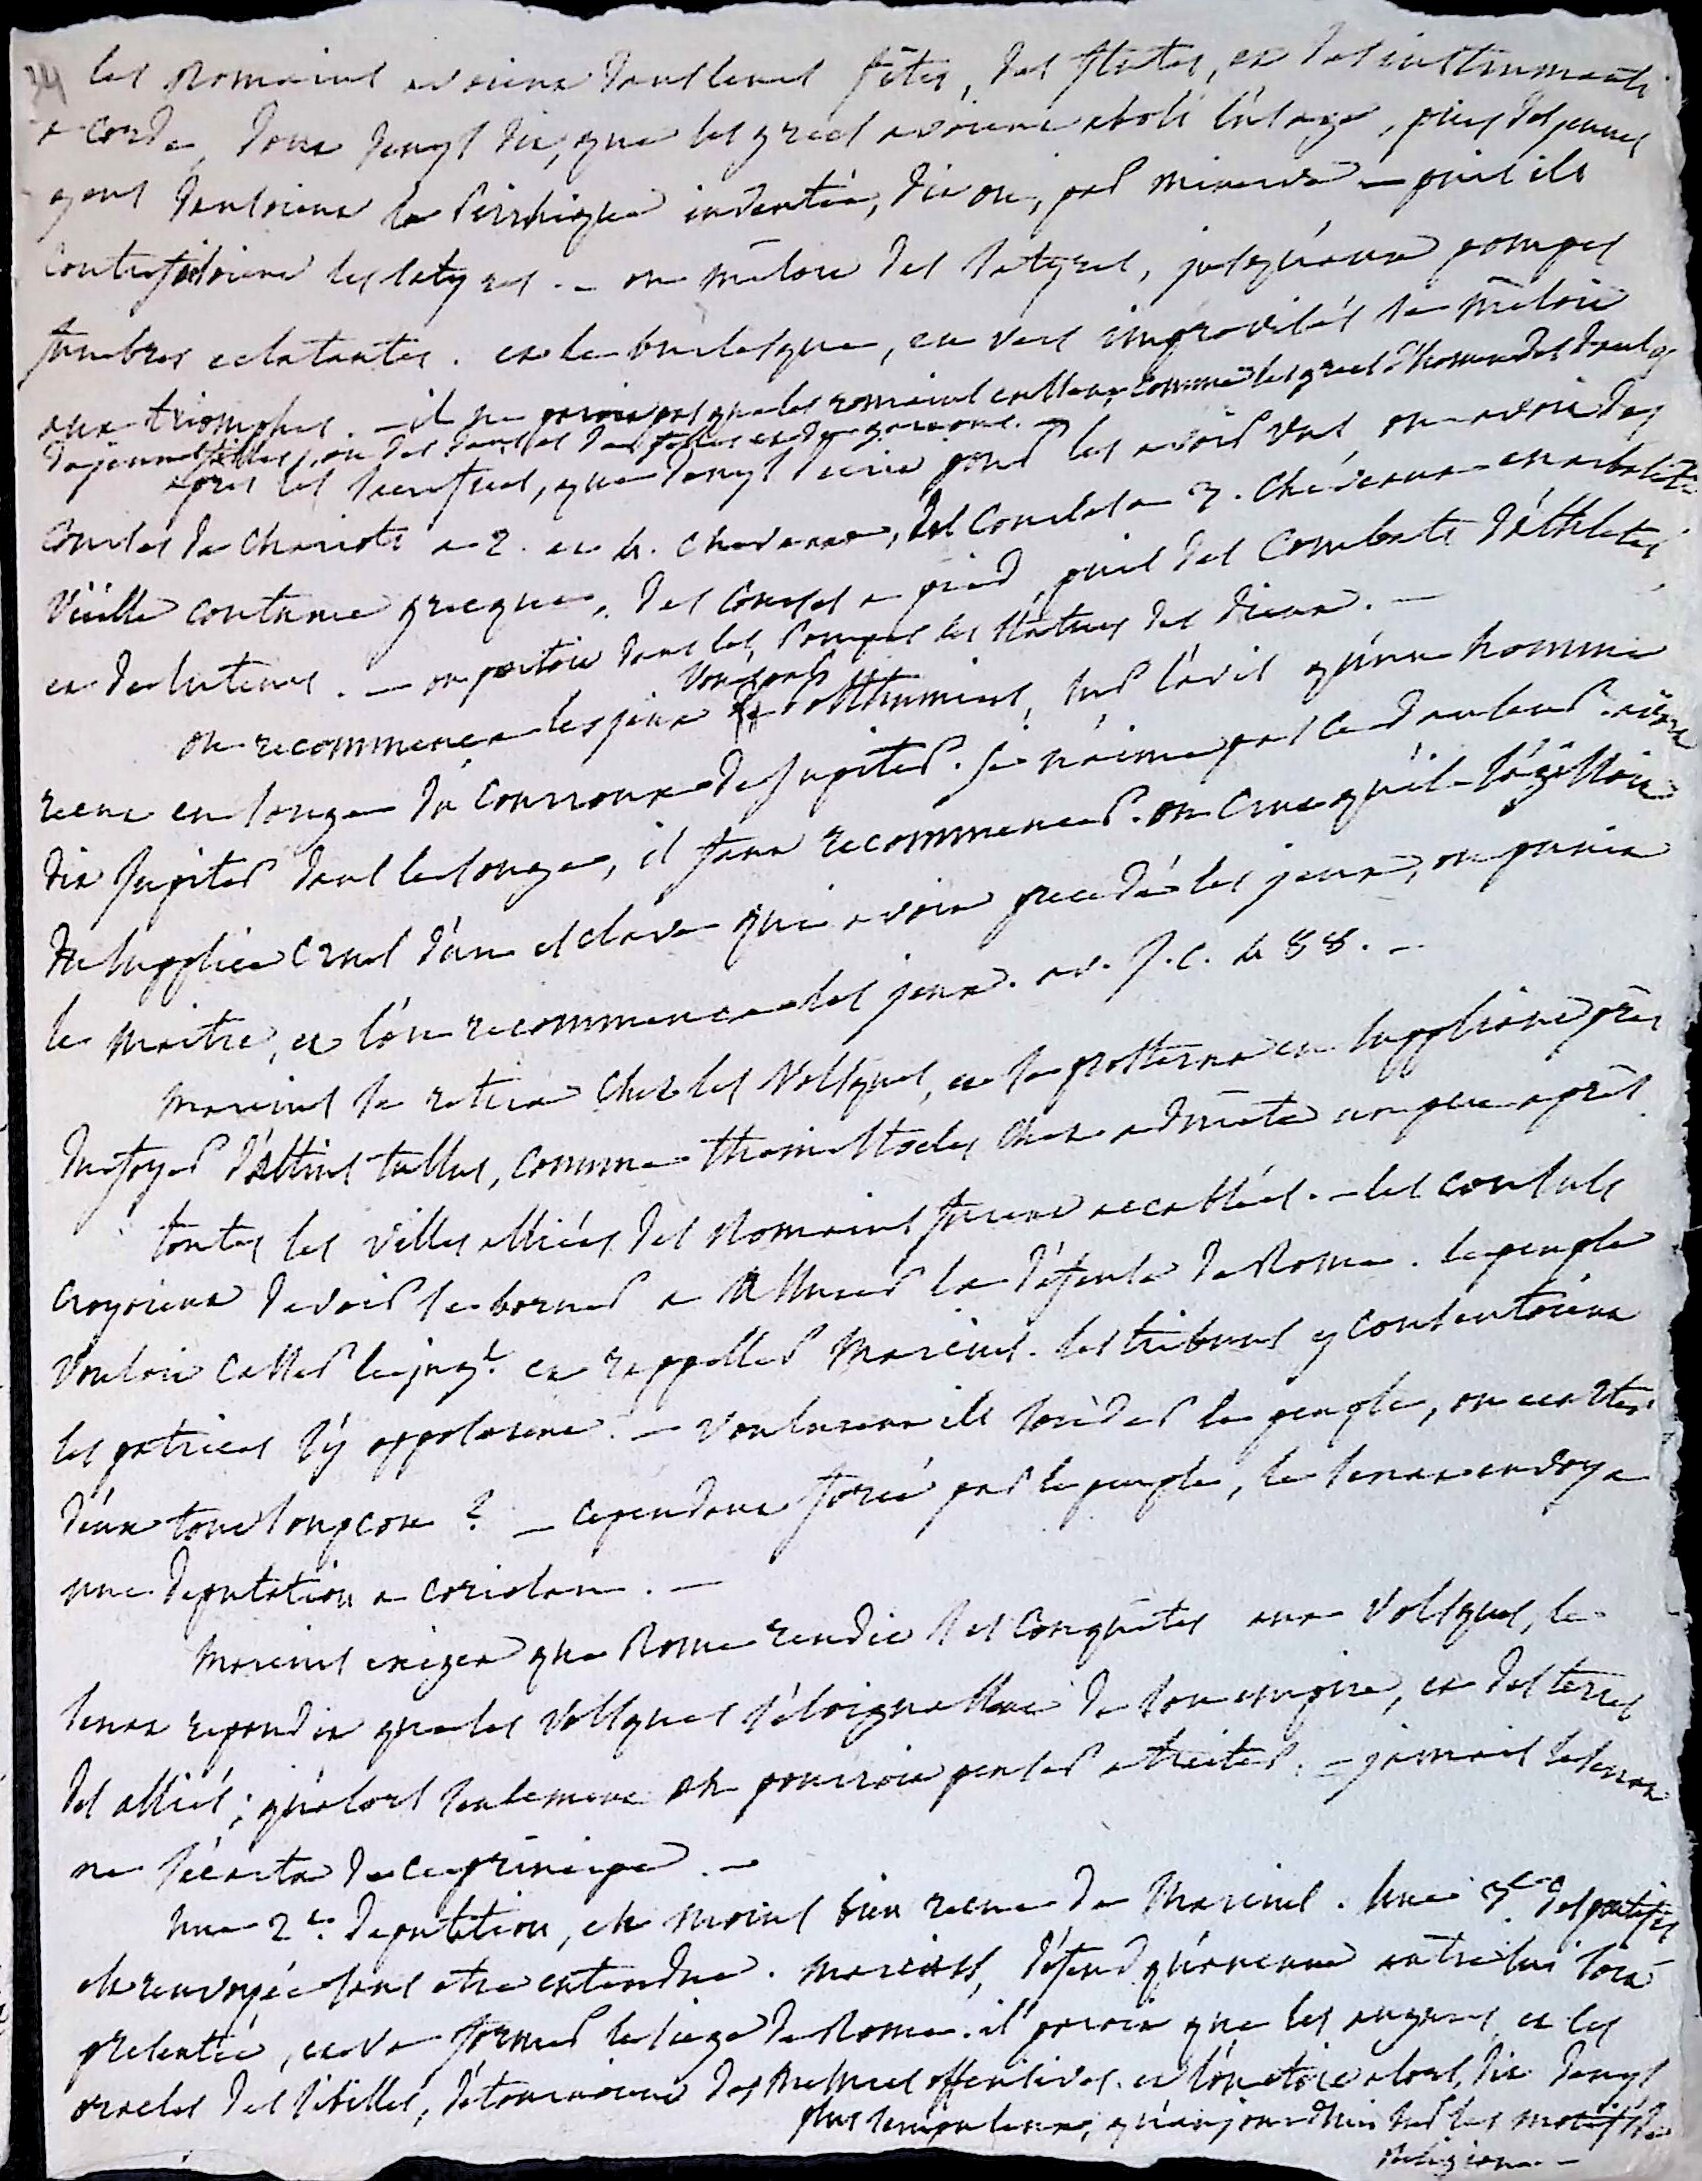 34 les Romains avoient dans leurs fêtes, des flutes, et des instruments
a corde, dont Denys dit, que les grecs avoient aboli l'usage, puis des jeunes
gens dansoient la Pirrhique inventée, dit on, par Minerve — puis ils
contrefaisoient les satyres. — on mêloit des satyres, jusqu'aux pompes
funebres eclatantes. et le burlesque, en vers improvisés se mêloit
aux triomphes. — il ne paroit pas que les romains eussent comme les grecs d'homere des danses
de jeunes filles, ou des danses de filles et de garcons. —
apres les sacrifices, que Denys decrit pour les avoir vus, on avoit des
courses de chariots a 2. et 4. chevaux, des courses a 3. chevaux
vieille coutume grecque, des courses a pied, puis des combats d'athletes
et de luteurs. — on portoit dans les pompes les statues des dieux. —
on recommença les jeux sur l'avis qu'un homme
recut en songe du courroux de Jupiter. je n'aime pas ce danseur
dit Jupiter dans le songe, il faut recommencer. on crut qu'il s'agissoit
du supplice cruel d'un esclave qui avoit precedé les jeux, on punit
le maitre, et l'on recommenca les jeux. av. J.C. 488. —
Marcius se retira chez les Volsques, et se prosterna en suppliant près
du foyer d'Attius Tullus, comme Themistocles chez Admete un peu après.
toutes les villes alliées des Romains furent accablées. — les consuls
croyoient devoir se borner a assurer la défense de Rome. le peuple
vouloit casser le jugt. et rappeller Marcius. les tribuns y consentoient
les patriciens s'y opposerent. — vouloient ils sonder le peuple, ou ecarter
d'eux tout soupcon ? — cependant forcé par le peuple, le senat envoya
une deputation a coriolan. —
Marcius exigea que Rome rendit ses conquêtes aux Volsques, le
senat repondit que les Volsques s'éloignassent de son empire, et des terres
des alliés ; qu'alors seulement on pourroit penser a traiter. — jamais le senat
ne s'écarta de ce principe. —
une 2e. deputation, est moins bien recue de Marcius. une 3e. des pontifes
est renvoyée sans etre entendue. Marcius, défend qu'aucune autre lui soit
presentée, et va former le siege de Rome. il paroit que les augures et les
oracles des sibilles, détournoient des mesures offensives. et l'on étoit alors, dit Denys
plus scrupuleux, qu'aujourd'hui sur les motifs de
religion. —